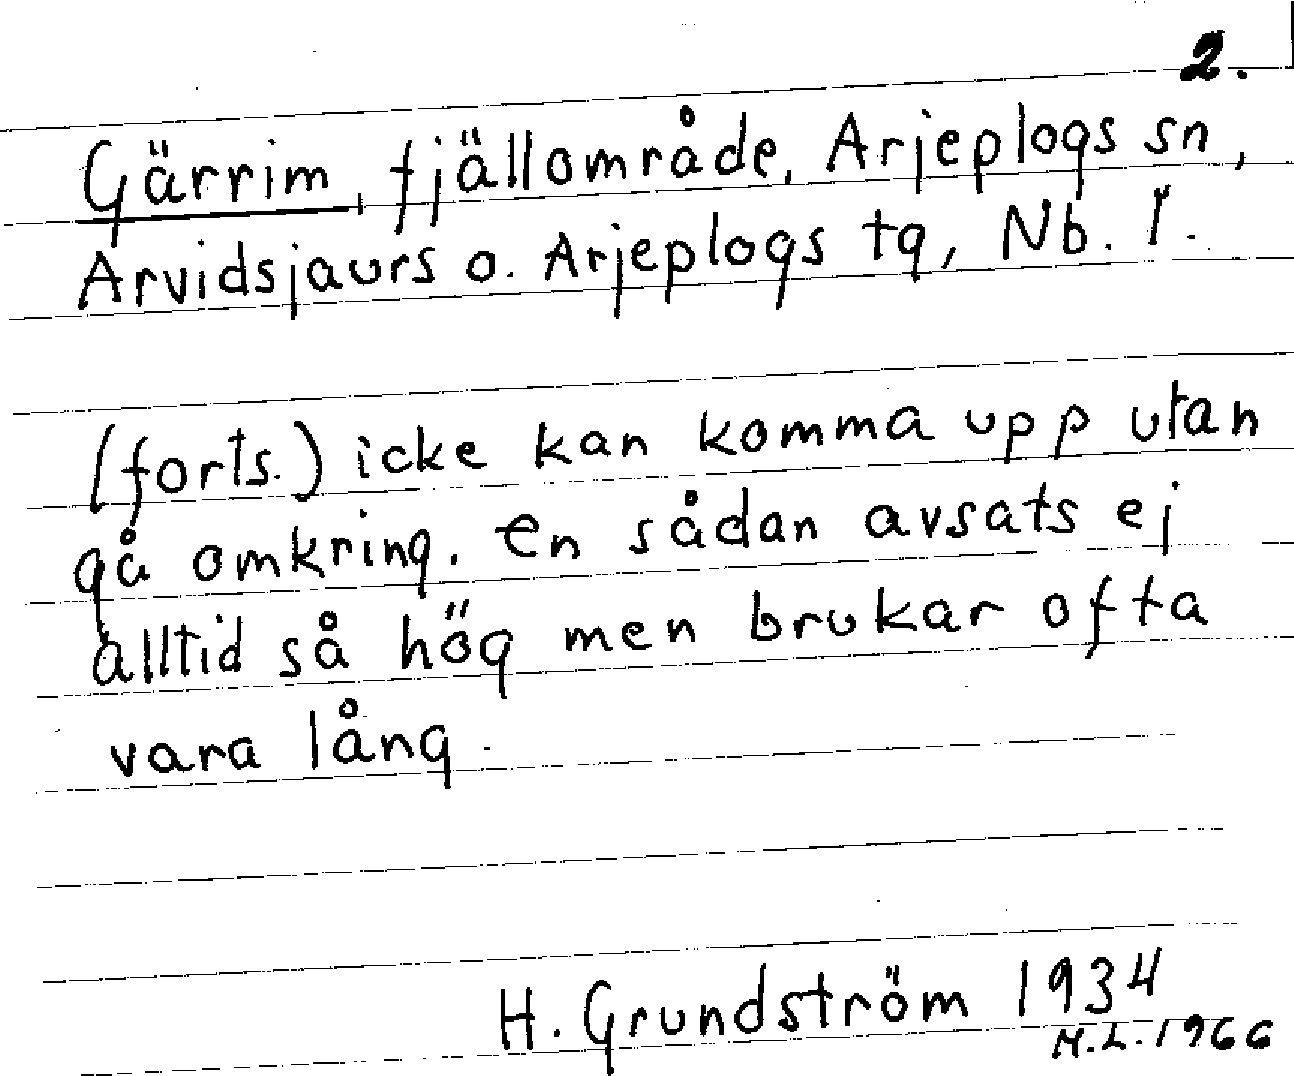 2.
Gärrim, fjällområde, Arjeplogs sn,
Arvidsjaurs o. Arjeplogs tg, Nb. l.
(forts.) icke kan komma upp utan
gå omkring. En sådan avsats ej
alltid så hög men brukar ofta
vara lång.
H. Grundström 1934
M.L. 1966